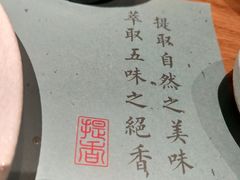 提取自然之美味
萃取五味之絕香
提香